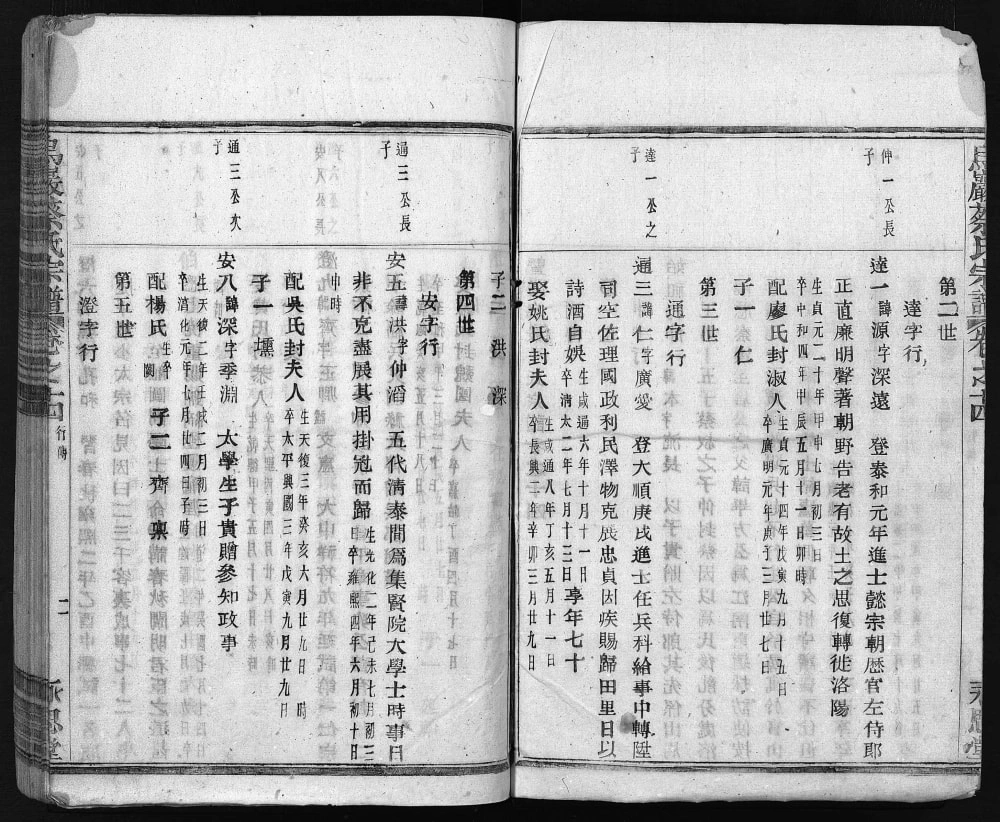 馬巖蔡氏宗譜卷之十四
永思堂
第二世
達字行
仲一公長子
達一諱源字深遠 登泰和元年進士懿宗朝歷官左侍郎
正直廉明聲著朝野告老有故土之思復轉徙洛陽
生貞元二十年甲申七月初三日
卒中和四年甲辰五月十一日卯時
配廖氏封淑人生貞元十四年戊寅九月十五日
卒廣明元年庚子三月廿七日
子一 仁
第三世
通字行
達一公之子
通三諱仁字廣愛 登大順庚戌進士任兵科給事中轉陞
司空佐理國政利民澤物克展忠貞因疾賜歸田里日以
詩酒自娛生咸通六年十月十一日
卒清太二年七月十三日享年七十
娶姚氏封夫人生咸通八年丁亥五月十一日
卒長興二年辛卯三月廿九日
子二 洪 深
第四世
安字行
通三公長子
安五諱洪字仲滔 五代清泰間爲集賢院大學士時事日
非不克盡展其用掛冠而歸生光化二年己未七月初三
日卒雍熙四年六月初十日
申時
配吳氏封夫人生天復三年癸亥六月廿九日 時
卒太平興國三年戊寅九月廿九日
子一 壎
通三公次子
安八諱深字季淵 太學生子貴贈參知政事
生天復二年壬戌二月初三日
卒淳化元年七月廿四日子時
配楊氏生卒闕 子二 齊 稟
第五世
澄字行
馬巖蔡氏宗譜卷之十四
行傳
二
永思堂